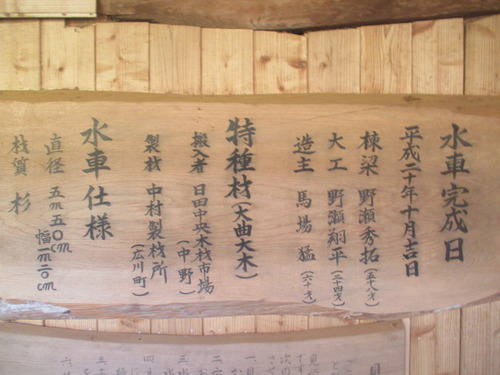 水車完成日
平成二十年十月吉日
棟梁 野瀬秀拓(五十八才)
大工 野瀬翔平(二十四才)
造主 馬場猛(六十才)
特種材(大曲大木)
搬入者 日田中央木材市場(中野)
製材 中村製材所(広川町)
水車仕様
直径 五m五〇cm
幅一m二〇cm
材質 杉